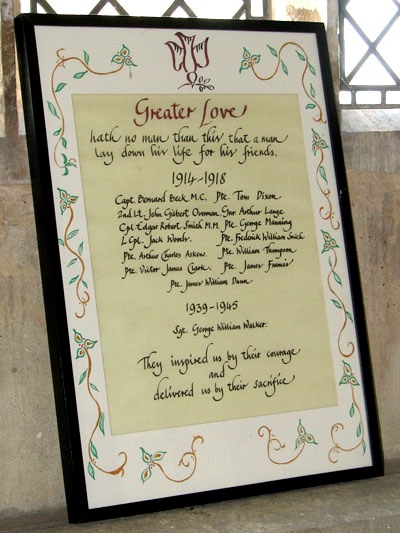 Greater Love
hath no man than this that a man
lay down his life for his friends.
1914-1918
Capt. Bernard Beck M.C. Pte. Tom Dixon
2nd Lt. John Gilbert Overman. Gnr. Arthur Large
Cpl. Edgar Robert Smith M.M. Pte. George Manning
L Cpl. Jack Woods. Pte. Frederick William Smith
Pte. Arthur Charles Askew. Pte. William Thompson
Pte. Victor James Clark. Pte. James Francis
Pte. James William Dunn
1939-1945
Sgt. George William Walker.
They inspired us by their courage
and
delivered us by their sacrifice